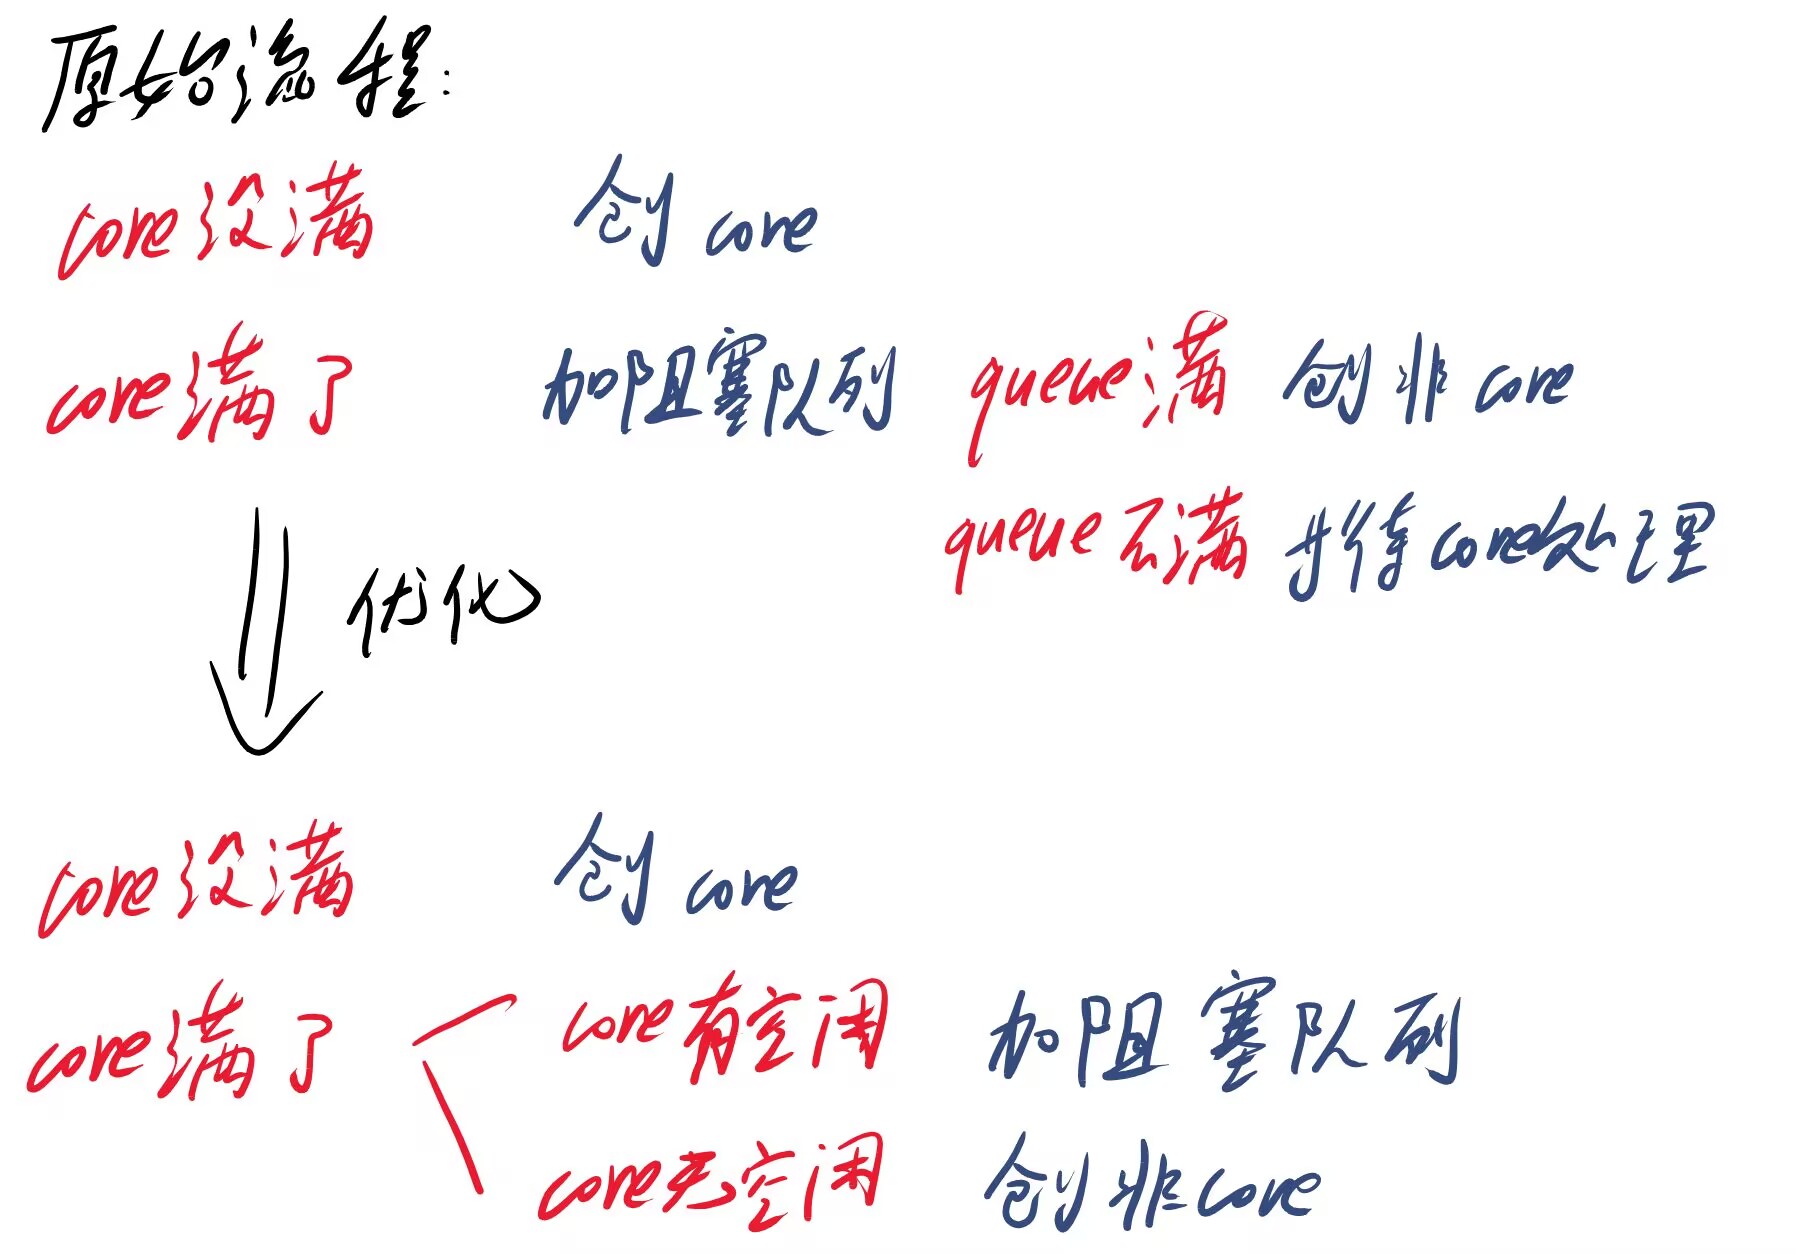 原始流程:
core没满 创core
core满了 加阻塞队列 queue满 创非core
queue不满 等待core处理
优化
core没满 创core
core满了 core有空闲 加阻塞队列
core无空闲 创非core